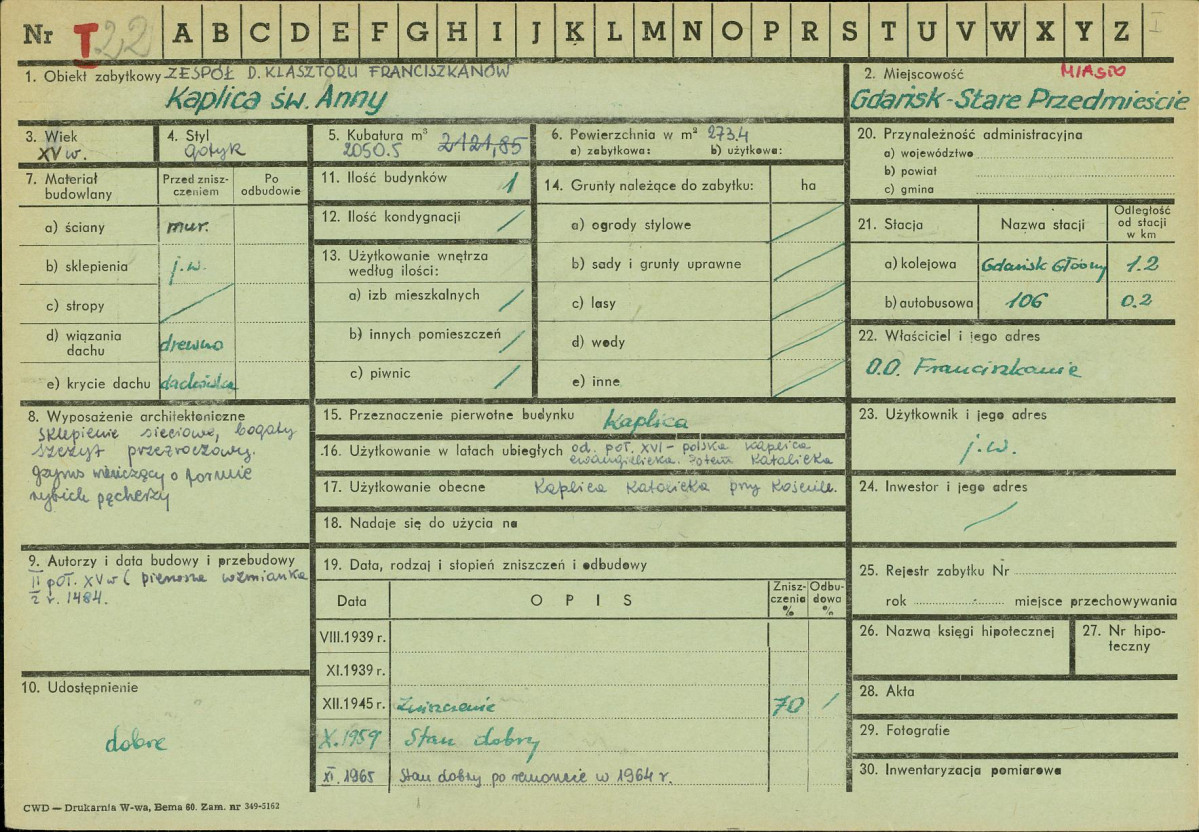 Nr T 22 A B C D E F G H I J K L M N O P R S T U V W X Y Z I
1. Obiekt zabytkowy ZESPÓŁ D. KLASZTORU FRANCISZKANÓW
Kaplica św. Anny
2. Miejscowość MIASTO
Gdańsk - Stare Przedmieście
3. Wiek
XV w.
4. Styl
gotyk
5. Kubatura m³ 2121,85
2050.5
6. Powierzchnia w m² 273.4
a) zabytkowa: b) użytkowa:
7. Materiał
budowlany
Przed znisz-
czeniem
Po
odbudowie
a) ściany mur.
b) sklepienia j.w.
c) stropy /
d) wiązania
dachu drewno
e) krycie dachu dachówka
8. Wyposażenie architektoniczne
Sklepienie sieciowe, bogaty
szczyt przezroczowy.
gzyms wieńczący o formie
rybich pęcherzy
9. Autorzy i data budowy i przebudowy
II poł. XV w ( pierwsza wzmianka
2 r. 1484.
10. Udostępnienie
dobre
11. Ilość budynków 1
12. Ilość kondygnacji /
13. Użytkowanie wnętrza
według ilości:
a) izb mieszkalnych /
b) innych pomieszczeń /
c) piwnic /
14. Grunty należące do zabytku: ha
a) ogrody stylowe /
b) sady i grunty uprawne /
c) lasy /
d) wody /
e) inne /
15. Przeznaczenie pierwotne budynku Kaplica
16. Użytkowanie w latach ubiegłych od. poł. XVI - polska kaplica
ewangielicka. Potem Katolicka
17. Użytkowanie obecne Kaplica Katolicka przy Kościele.
18. Nadaje się do użycia na
19. Data, rodzaj i stopień zniszczeń i odbudowy
Data OPIS Znisz-
czenia
% Odbu-
dowa
%
VIII.1939 r.
XI.1939 r.
XII.1945 r. Zniszczenie 70 /
X.1959 Stan dobry
XI.1965 Stan dobry po remoncie w 1964 r.
20. Przynależność administracyjna
a) województwo
b) powiat
c) gmina
21. Stacja Nazwa stacji Odległość
od stacji
w km
a) kolejowa Gdańsk Główny 1.2
b) autobusowa 106 0.2
22. Właściciel i jego adres
O.O. Franciszkanie
23. Użytkownik i jego adres
j.w.
24. Inwestor i jego adres
/
25. Rejestr zabytku Nr
rok miejsce przechowywania
26. Nazwa księgi hipotecznej
27. Nr hipo-
teczny
28. Akta
29. Fotografie
30. Inwentaryzacja pomiarowa
CWD — Drukarnia W-wa, Bema 60. Zam. nr 349-5162